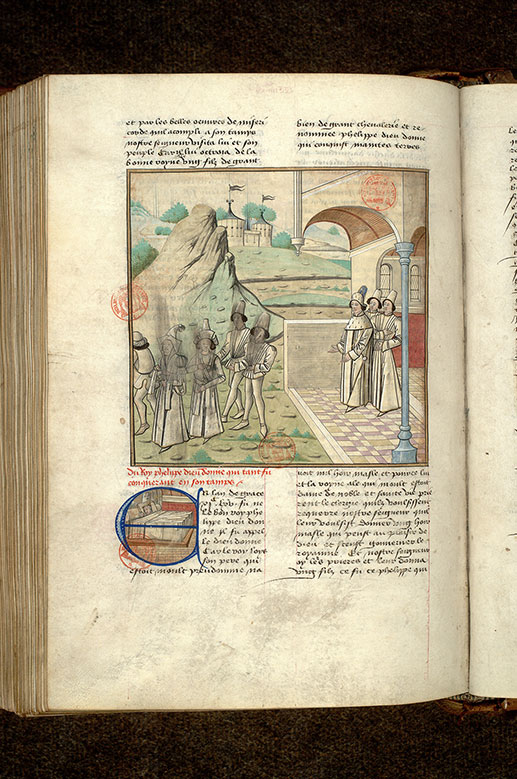 et par les belles oeuvres de miseri
corde quil acompli a son temps
nostre seigneur visita lui et son
peuple Car il lui octroia de la
bonne royne ung filz de grant
bien de grant chevalerie et re
nommee phelippe dieu donne
qui conquist maintes terres
Du Roy phelipe dieu donne qui tant fu
conquerant en son temps
En lan de grace
fu ne
le bon roy phe
lipe dieu don
ne Il fu appel
le dieu donne
Car le roy loys
son pere qui
estoit moult preudomme na
voit nul hoir masle et pource lui
et la royne ale qui moult estoit
dame de noble et sainte vie pri
rent le clergie quilz voulsissent
requerre nostre seigneur que
leur voulsist donner ung hoir
masle qui peust au plaisir de
dieu et sceust gouverner le
royaume Et nostre seigneur
oy les prieres et leur donna
ung filz ce fu ce phelippe qui